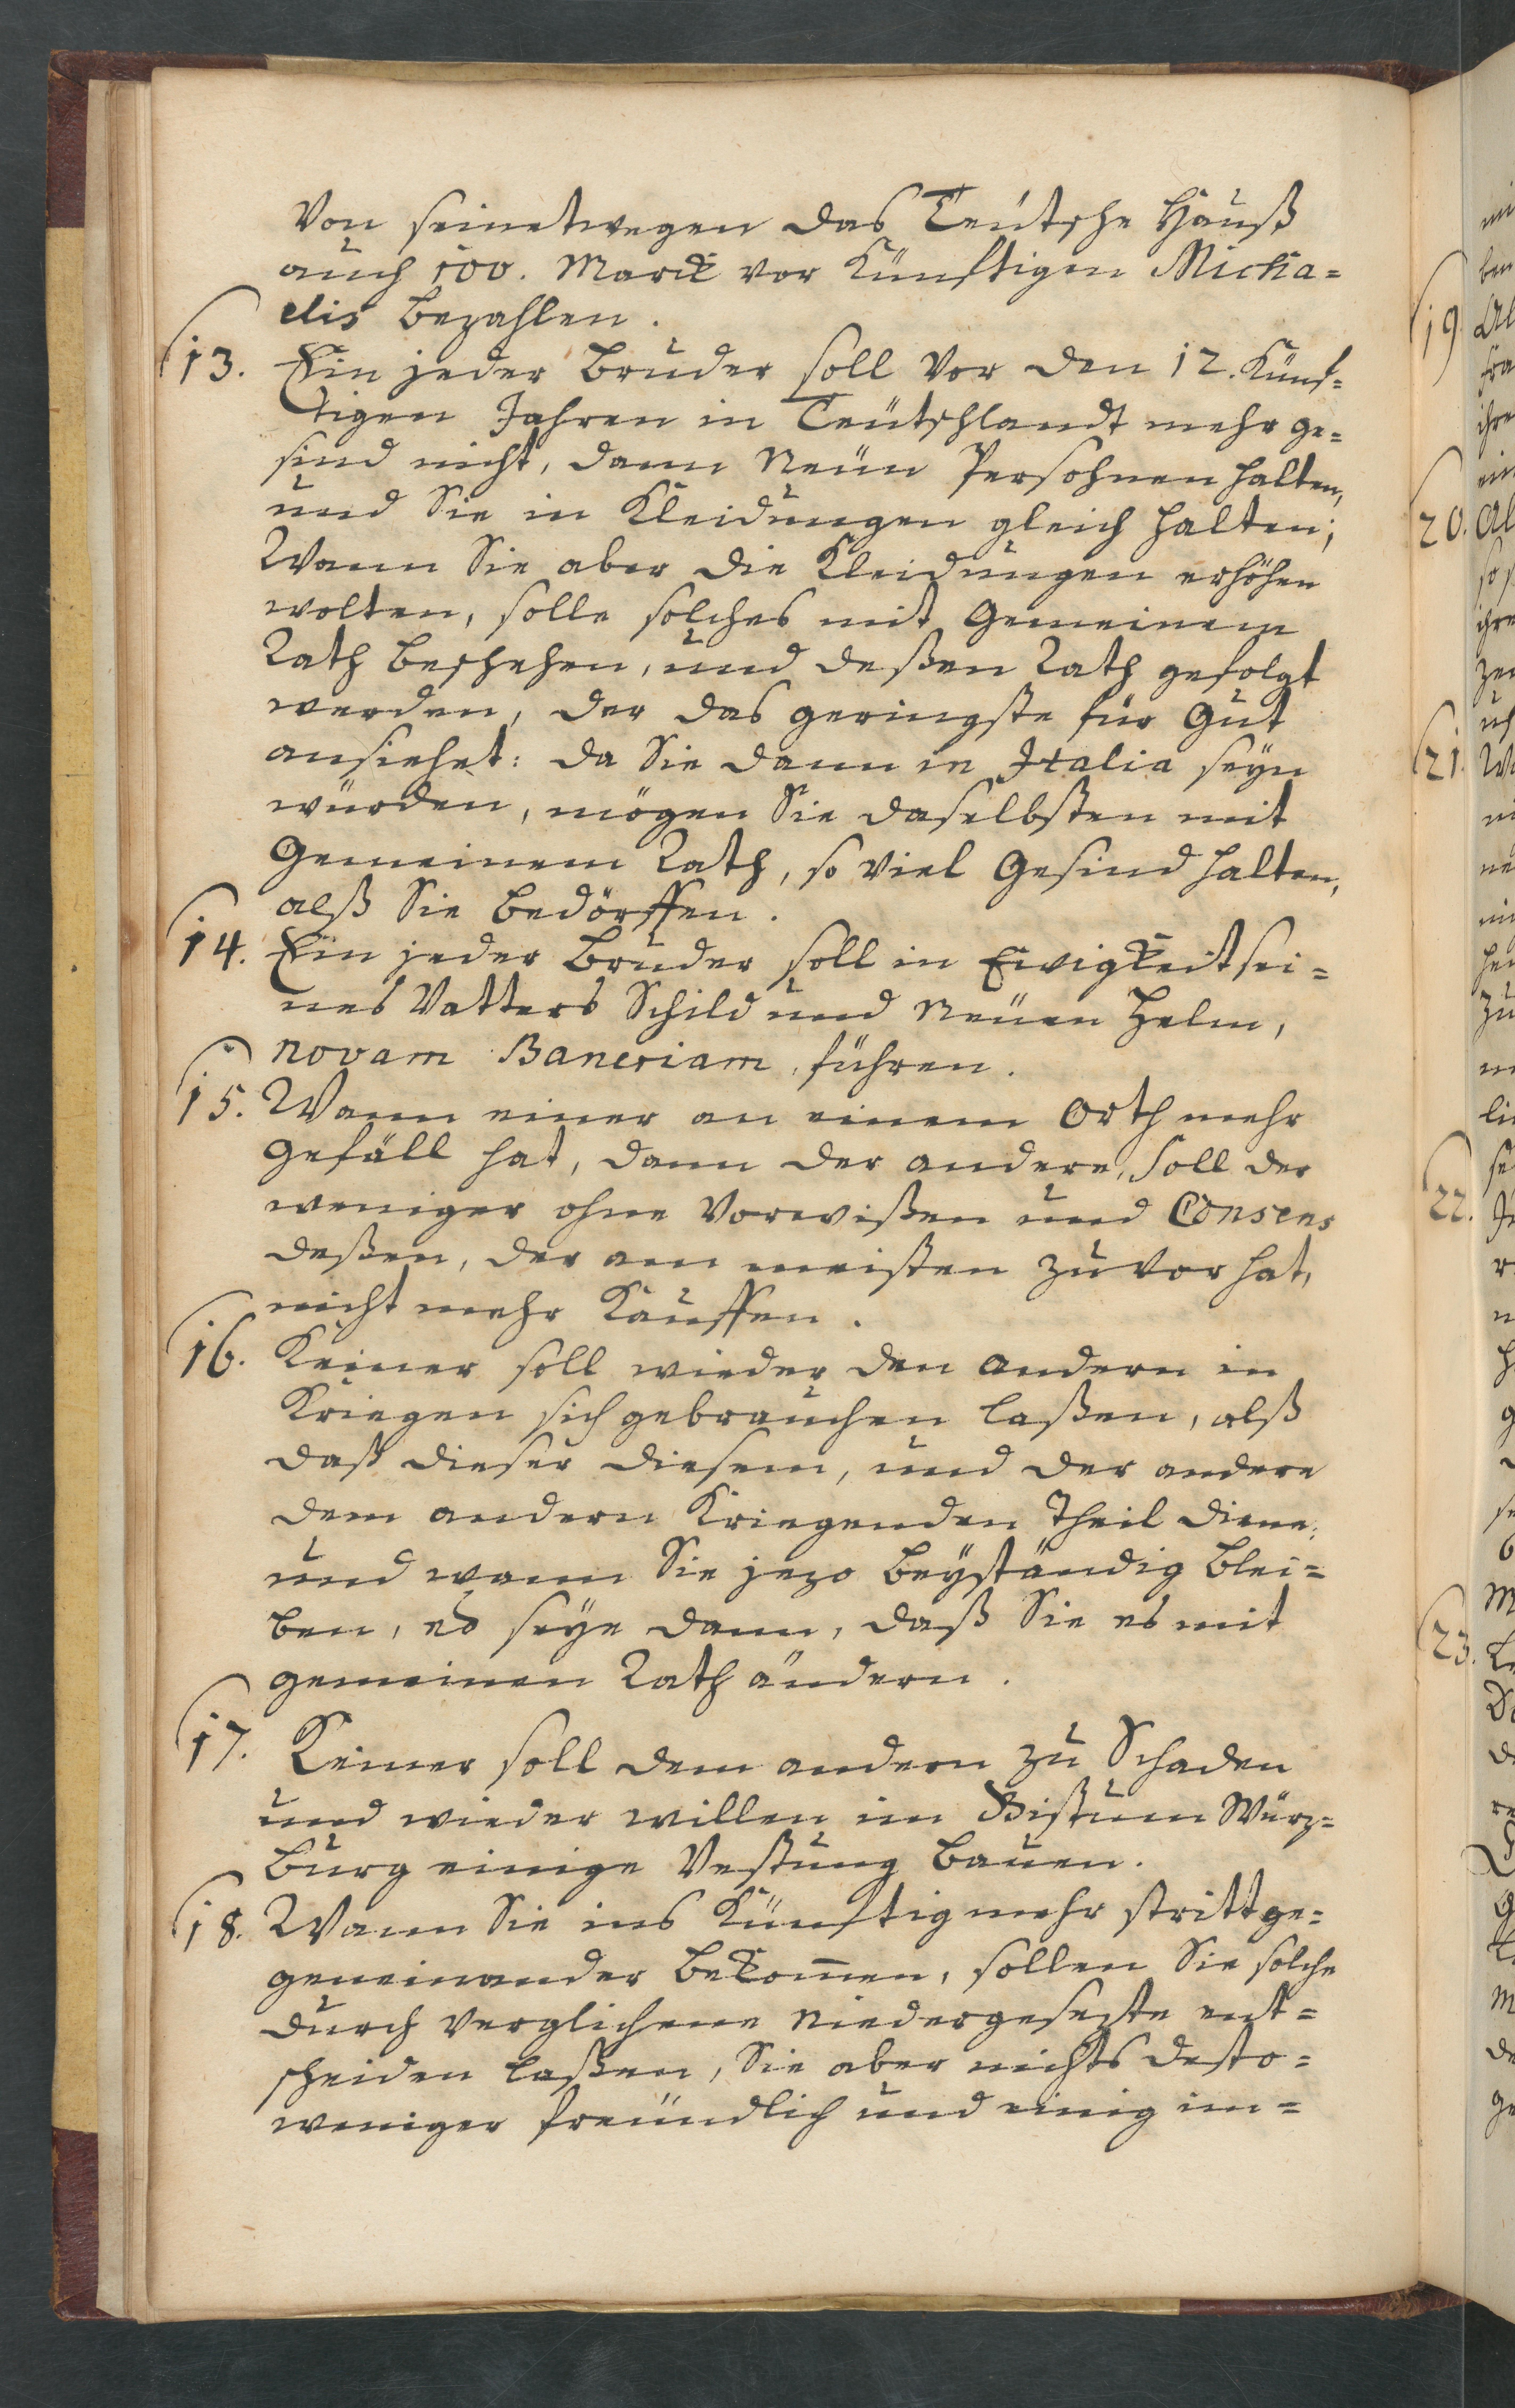 Von seinetwegen das Teütsche Hauß
auch 100. Marck vor Künftigen Micha=
elis bezahlen.
13. Ein jeder Bruder soll vor den 12. Künf=
tigen Jahren in Teütschlandt mehr ge=
sind nicht, dann Neün Persohnen halten,
und Sie in Kleidungen gleich halten;
Wann Sie aber die Kleidungen erhöhen
wolten, solle solches mit Gemeinem
Rath beschehen, und deßen Rath gefolgt
werden, der das geringste für Gut
ansiehet: da Sie dann in Italia seyn
würden, mögen Sie daselbsten mit
Gemeinem Rath, so viel Gesind halten,
alß Sie bedörffen.
14. Ein jeder Bruder soll in Ewigkeit sei=
nes Vatters Schild und Neüen Helm,
novam Baneriam, führen.
15. Wann einer an einem Orth mehr
Gefäll hat, dann der andere, soll der
weniger ohne Vorwißen und Consens
deßen, der am meisten zuvor hat,
nicht mehr Kauffen.
16. Keiner soll wieder den andern in
Kriegen sich gebrauchen laßen, alß
daß dieser diesem, und der andere
dem andern Kriegenden Theil diene:
und wann Sie jezo beyständig blei=
ben, es seye dann, daß Sie es mit
gemeinen Rath ändern.
17. Keiner soll dem andern zu Schaden
und wieder willen im Bistum Würz=
burg einige Vestung bauen.
18. Wann Sie ins Künftig mehr stritt ge=
geneinander bekom̄en, sollen Sie solche
durch verglichene Niedergesezte ent=
scheiden laßen, Sie aber nichts desto=
weniger freündlich und einig im=
19.
20.
21.
22.
23.